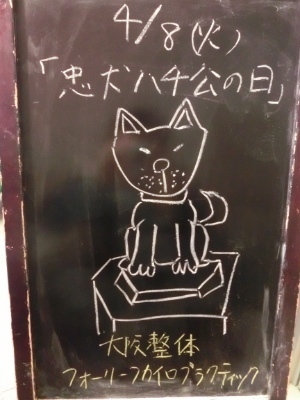 4/8(火)
「忠犬ハチ公の日」
大阪整体
フォーリーフカイロプラクティック